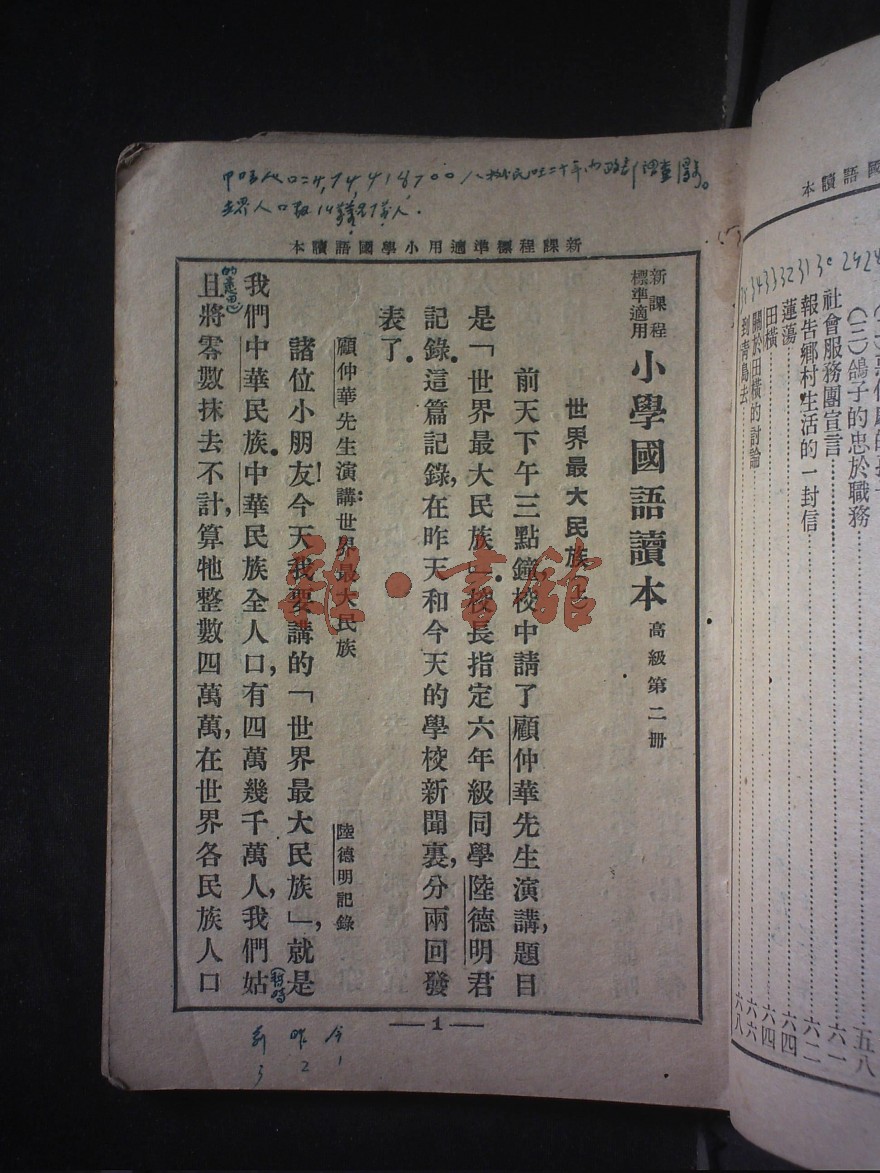 新課程標準適用小學國語讀本
新課程標準適用 小學國語讀本 高級第二冊
世界最大民族(上)
前天下午三點鐘,校中請了顧仲華先生演講,題目
是「世界最大民族」。校長指定六年級同學陸德明君
記錄。這篇記錄,在昨天和今天的學校新聞裏,分兩回發
表了。
顧仲華先生演講:世界最大民族 陸德明記錄
諸位小朋友!今天我要講的「世界最大民族」,就是
我們中華民族。中華民族全人口,有四萬幾千萬人,我們姑
且將零數抹去不計,算牠整數四萬萬,在世界各民族人口
—1—
的意思
暫時
今 1
昨 2
前 3
世界人口
國語讀本
(三)鴿子的忠於職務 五八
30 社會服務團宣言 六一
31 報告鄉村生活的一封信 六二
32 蓮蕩 六四
33 田橫 六四
34 關於田橫的討論 六六
到靑島去 六八
雜·書館